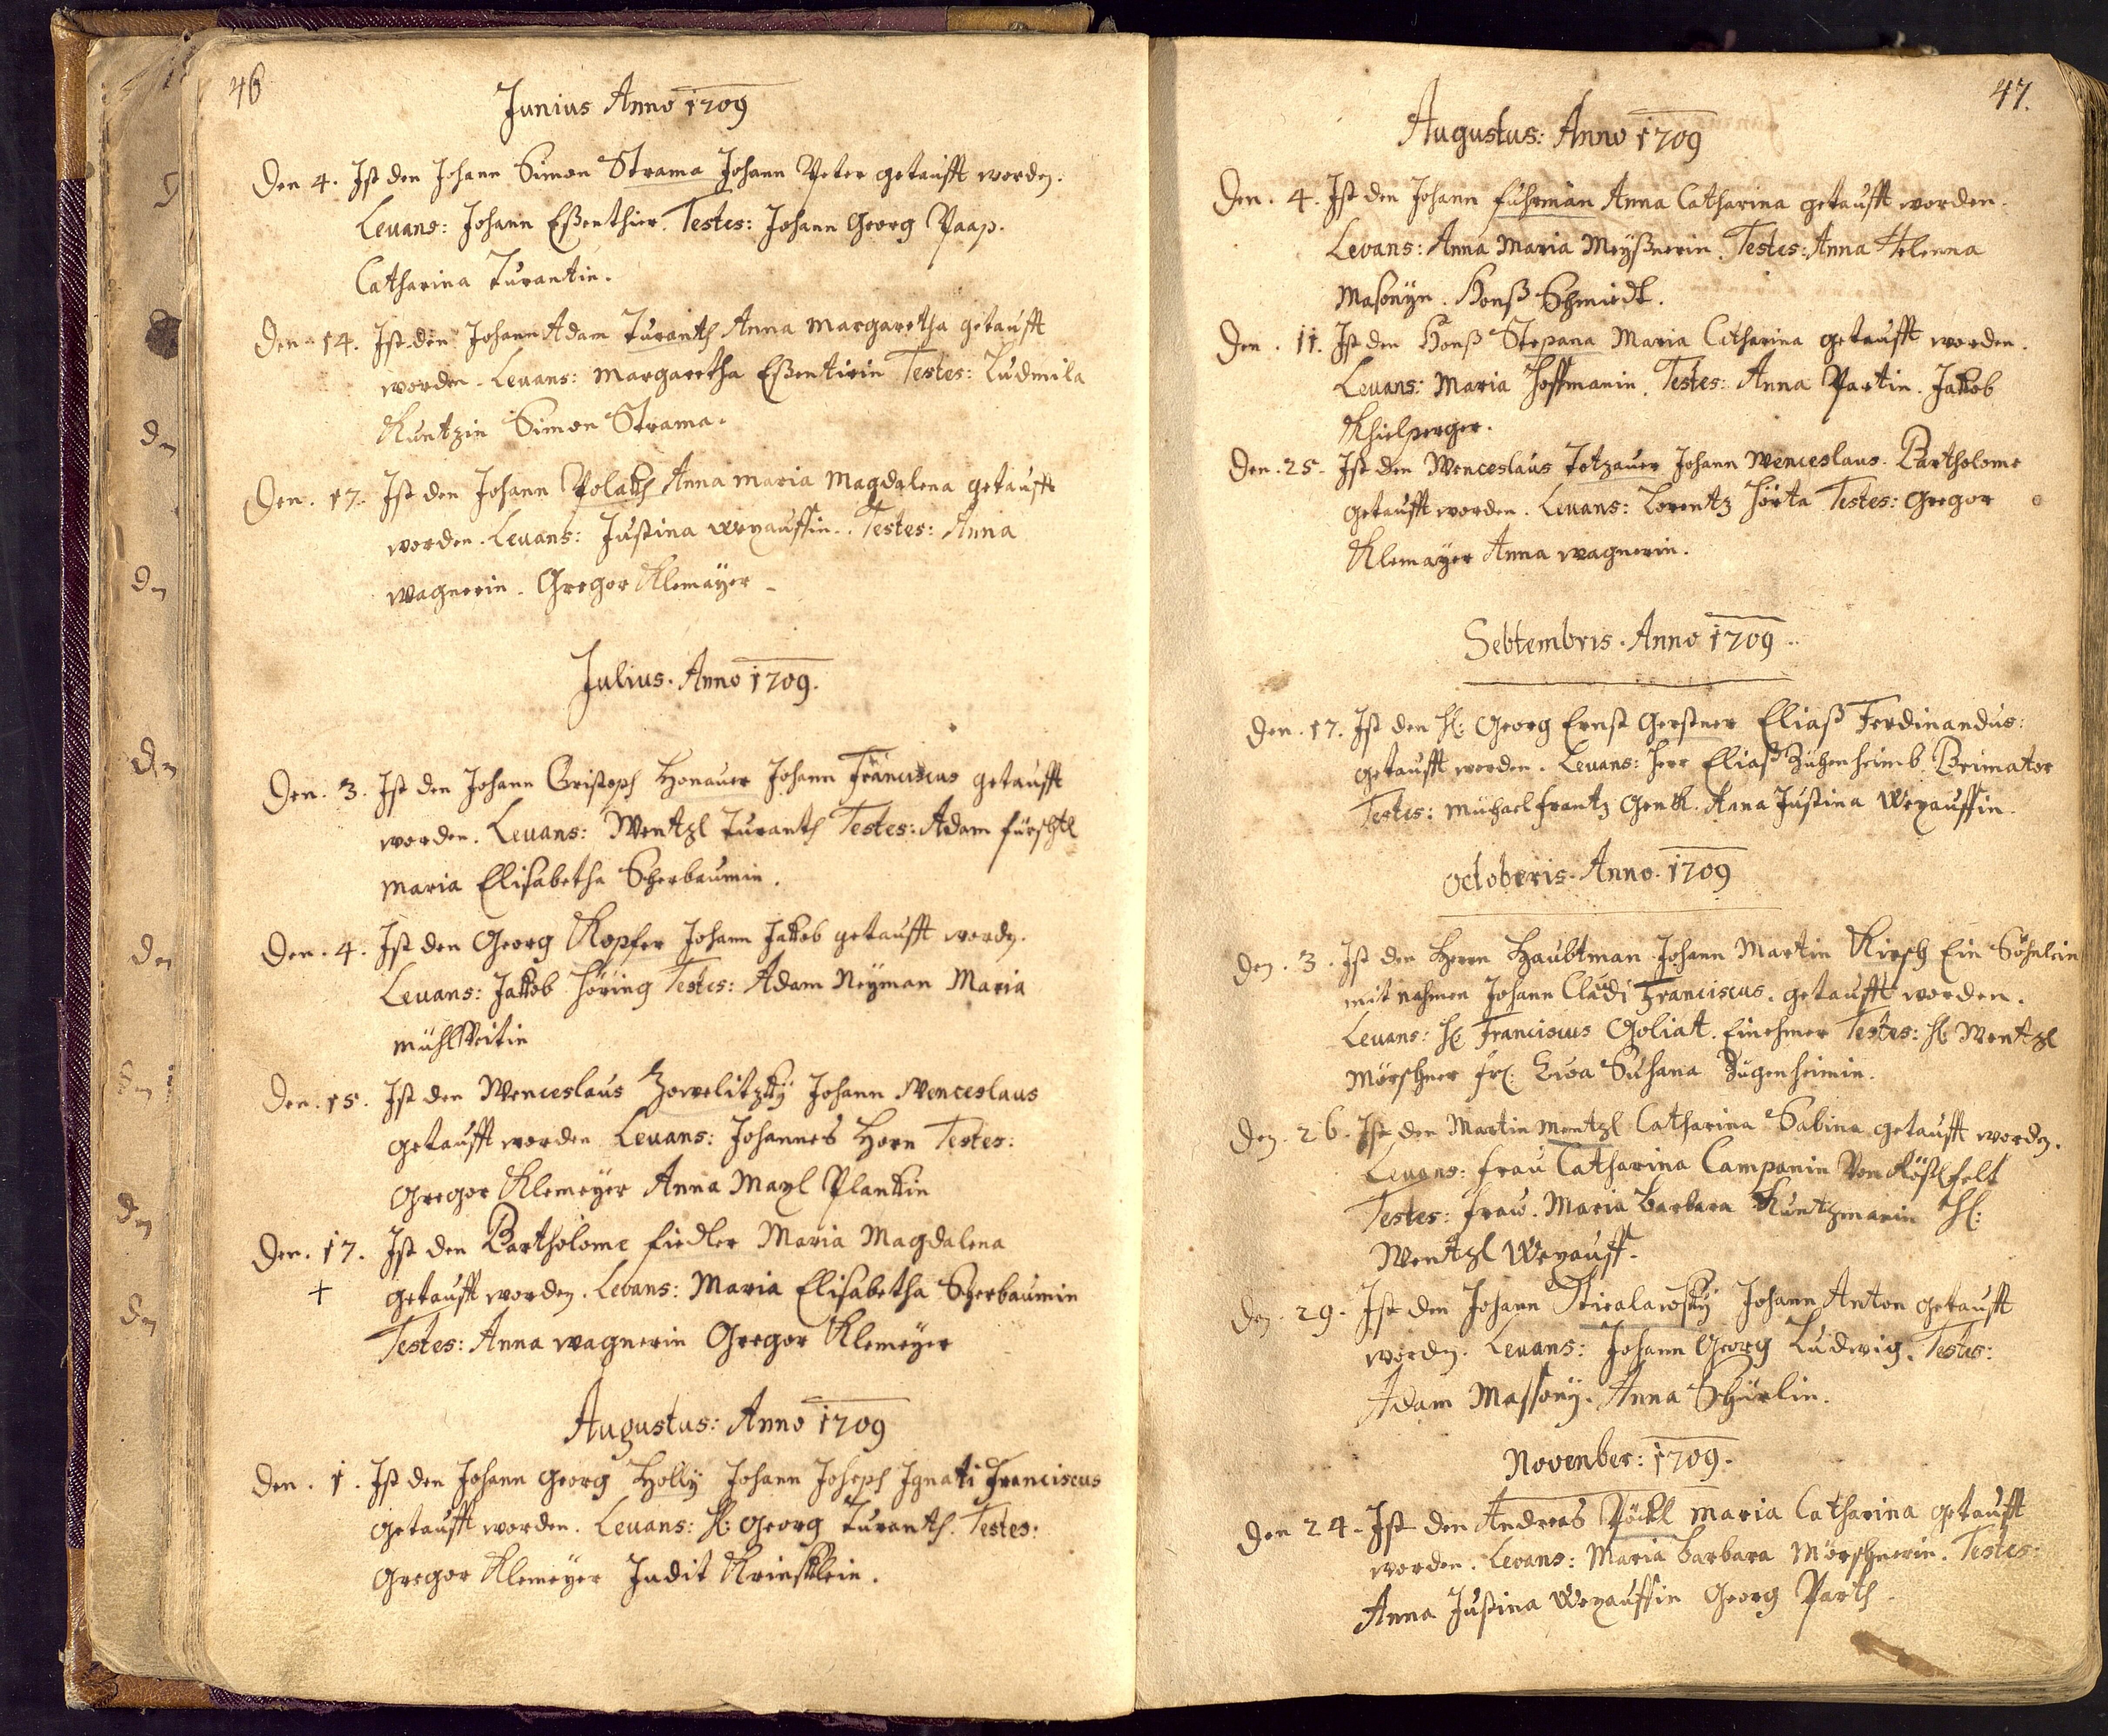 46
Junius Anno 1709
Den 4. Ist den Johann Simon Strama Johann Peter getaufft worden.
Leuans: Johann Eßenthier. Testes: Johann Georg Paap.
Catharina Turantin.
Den 14. Ist den Johann Adam Turanth Anna Margaretha getaufft
worden. Leuans: Margaretha Eßentirin Testes: Ludmila
Kuntzin Simon Strama.
Den. 17. Ist den Johann Polakh Anna Maria Magdalena getaufft
worden. Leuans: Justina Wexauffin. Testes: Anna
Wagnerin. Gregor Klemayer
Julius. Anno 1709.
Den. 3. Ist den Johann Cristoph Honauer Johann Franciscus getaufft
worden. Leuans: Wentzl Turanth Testes: Adam
Maria Elisabetha Scherbaumin.
Den. 4. Ist den Georg Kopfer Johann Jakob getaufft worden.
Leuans: Jakob Höring Testes: Adam Neÿman Maria
Den. 15. Ist den Wenceslaus Zowelitzkÿ Johann Wenceslaus
getaufft worden Leuans: Johannes Horn Testes:
Gregor Klemeÿer Anna Plankin
Den. 17. Ist den Bartholome Fiedler Maria Magdalena
+ getaufft worden. Levans: Maria Elisabetha Scherbaumin
Testes: Anna Wagnerin Gregor Klemeÿer
Augustus: Anno 1709
Den. 1. Ist den Johann Georg Holly Johann Joseph Ignati Franciscus
getaufft worden. Leuans: H: Georg Turanth. Testes:
Gregor Klemeÿer Judit
47.
Augustus: Anno 1709
Den. 4. Ist den Johann Fuhrman Anna Catharina getaufft worden.
Levans: Anna Maria Meÿßnerin. Testes: Anna Helenna
Masonÿn. Honß Schmiedt.
Den. 11. Ist den Honß Stepana Maria Catharina getaufft worden.
Leuans: Maria Hoffmanin. Testes: Anna Partin. Jakob
Khielperger.
Den. 25. Ist den Wenceslaus Totzauer Johann Wenceslaus. Bartholome
getaufft worden. Leuans: Lorentz Hörta Testes: Gregor
Klemaÿer Anna Wagnerin.
Sebtembris. Anno 1709
Den. 17. Ist den H: Georg Ernst Gerstner Eliaß Ferdinandus:
getaufft worden. Leuans: Herr Eliaß Brimator
Testes: Michael Frantz Anna Justina Wexauffin.
Octoberis. Anno. 1709
Den. 3. Ist den Herrn Haubtman Johann Martin Kirsch Ein Söhnlein
mit nahmen Johann Claudi Franciscus. getaufft worden.
Leuans: H: Franciscus Goliat. Einehmer Testes: H: Wentzl
Mörschner Fr: Eva Susana Zugenheimin.
Den. 26. Ist den Martin Mentzl Catharina Sabina getaufft worden.
Leuans: Frau Catharina Campanin Von Rößlfelt
Testes: Frau. Maria Barbara Kuntzmanin H:
Wentzl Wexauff.
Den. 29. Ist den Johann Johann Anton getaufft
worden. Leuans: Johann Georg Ludwig. Testes:
Adam Massonÿ. Anna Schürlin.
November: 1709.
Den 24. Ist den Andreas Pöckl Maria Catharina getaufft
worden. Levans: Maria Barbara Mörschnerin. Testes:
Anna Justina Wexauffin Georg Parth